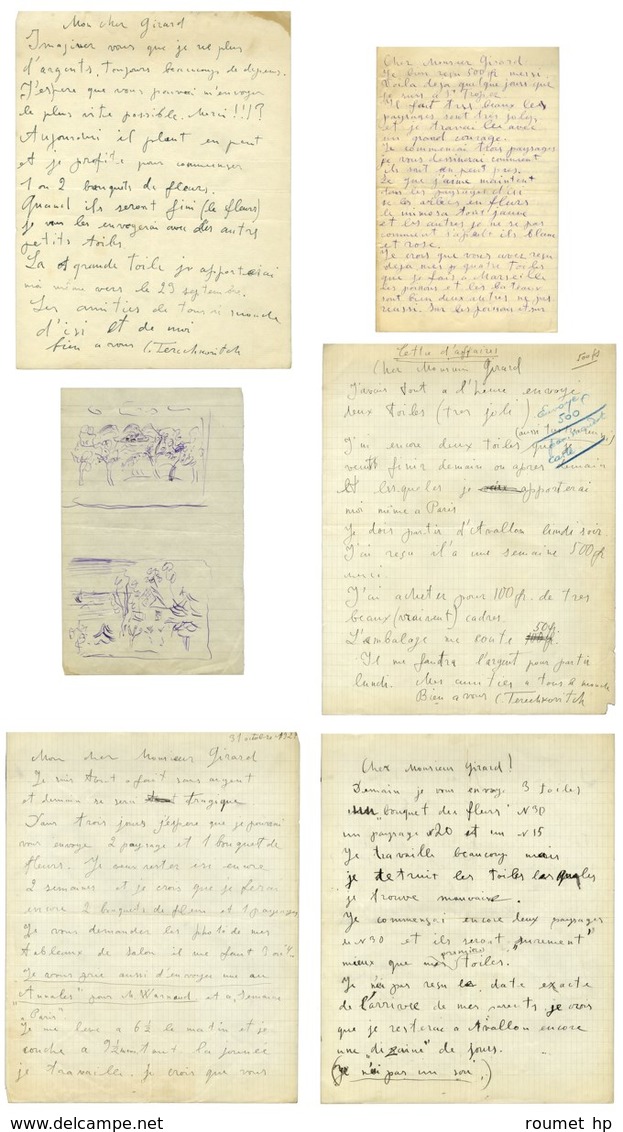 Mon cher Girard
Imaginer vous que je ne plus
d'argents, toujours beaucoups de depens.
J'espere que vous pouvai m'envoyer
le plus vite possible. Merci!!!?
Aujourdui il pleut en peut
et je profite pour commencer
1 ou 2 bouquets de fleurs.
Quand ils seront fini (le fleurs)
je vous les envoyerai avec des autres
petits toiles.
La grande toile je apporterai
moi même vers le 23 septembre.
Les amities de tous le monde
d'ici et de moi
bien a vous C. Terechkovitch
Cher Monsieur Girard
Je bien reçu 500 fr merci.
Voila deja quelque jours que
je suis a St Tropez
Il fait tres beaux les
paysages sont tres jolis
et je travai les avec
un grand courage.
Je commencai trois paysages
je vous dessinerai comment
ils sont un peut pres.
Ce que j'aime maintent
dans les paysages d'ici
se les arbres en fleurs
le mimosa tout jaune
et les autres je ne se pas
comment s'apele ils blanc
et rose.
Je crois que vous avez reçu
deja mes quatre toiles
que je fais a Marseille
les poissons et les bateaux
sont bien deux autres ne pas
reussi. Sur les poissons et sur
Lettre d'affaires
500 fr
Cher Monsieur Girard
J'avais tout a l'heure envoyé
deux toiles (tres joli)
Envoyé
500
J'ai encore deux toiles que
veut finir demain ou apres demain
et lesquelles je apporterai
moi même a Paris
Je dois partir d'Avallon lundi soir.
J'ai reçu il a une semaine 500 fr.
merci.
J'ai acheter pour 100 fr. de tres
beaux (vraiment) cadres.
50 fr.
L'ambalage me coute
Il me faudra l'argent pour partir
lundi. Mes amities a tous le monde
Bien a vous C. Terechkovitch
31 octobre 192
Mon cher Monsieur Girard
Je suis tout a fait sans argent
et demain se sera tragique
Dans trois jours j'espere que je pouvai
vous envoye 2 paysage et 1 bouquet de
fleurs. Je veux rester ici encore
2 semaines et je crois que je ferai
encore 2 bouquets de fleurs et 1 paysages
Je vous demander les photo de mes
tableaux de Salon il me faut
Je vous prie aussi d'envoyer une au
"Annales" pour M. Warnaud et a "Semaine
a Paris"
Je me leve a 6½ le matin et je
couche a 9½ toutant la journée
je travaille. Je crois que vous
Cher Monsieur Girard!
Demain je vous envoye 3 toiles
un bouquet des fleurs N30
un paysage N20 et un N15
Je travaille beaucoup mais
je detruit les toiles lesquelles
je trouve mauvaise.
Je commençai encore deux paysages
de N30 et ils seront "surement"
premiers
mieux que mes toiles.
Je n'ai pas reçu la date exacte
de l'arrivée de mes parents je crois
que je resterai a Avallon encore
une "dizaine" de jours.
(Je n'ai pas un sou.)
roumet hp